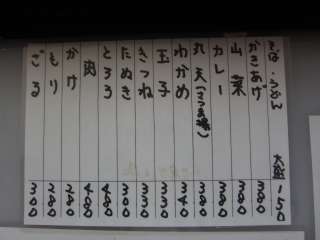 そば・うどん 大盛150
かきあげ 380
山菜 380
カレー 380
丸天(さつま揚) 380
わかめ 340
玉子 330
きつね 330
たぬき 300
とろろ 400
肉 400
かけ 280
もり 280
ざる 300